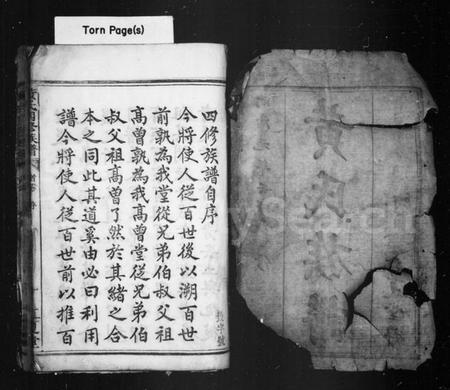 Torn Page(s)
四修族譜自序
今將使人從百世後以溯百世
前孰為我堂從兄弟伯叔父祖
高曾孰為我高曾堂從兄弟伯
叔父祖高曾了然於其緒之合
本之同此其道奚由必曰利用
譜今將使人從百世前以推百
黃氏族
FamilySearch